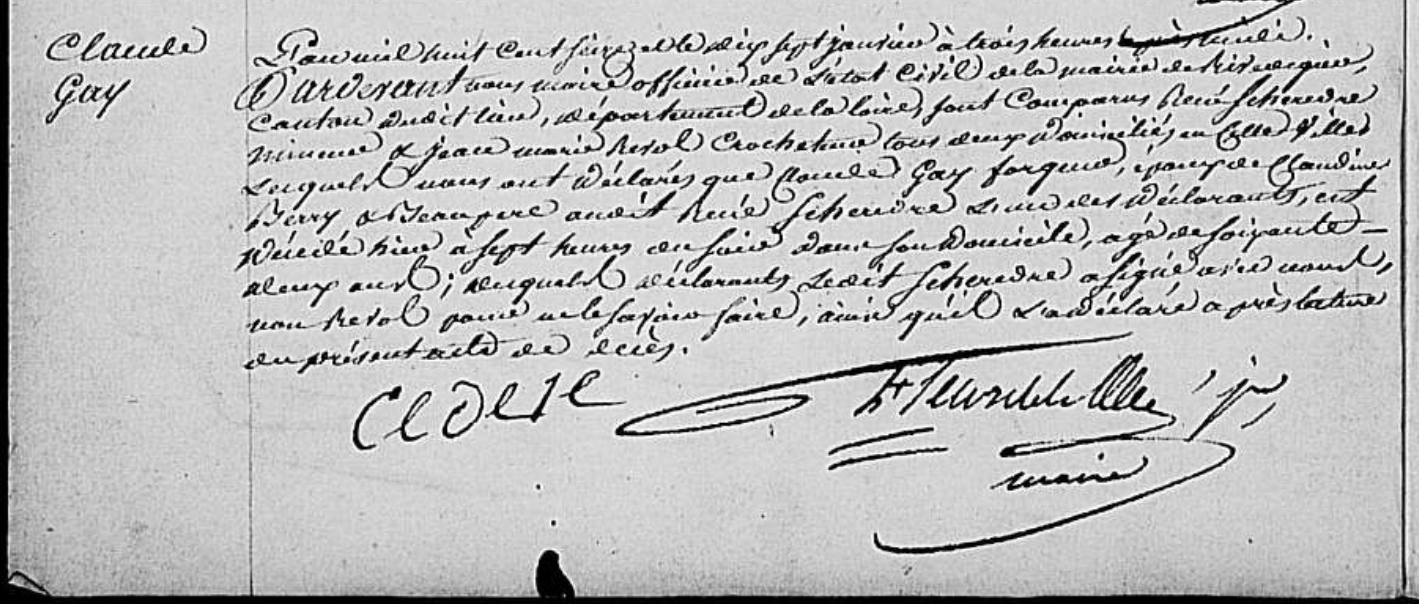 Claude
Gay
L'an mil huit cent seize et le dix sept janvier à trois heures après midi.
Pardevant nous maire officier de l'état civil de la mairie de Rivedegier,
canton dudit lieu, département de la loire, sont comparus René Scheredre
mineur & jean marie Revol Crocheteur tous deux domiciliés en cette ville
lesquels nous ont déclarés que Claude Gay forgeur, époux de Claudine
Berry & Beaupere audit René Scheredre l'un des déclarants, est
décédé hier à sept heures du soir dans son domicile, agé de soixante-
deux ans; desquels déclarants ledit Scheredre a signé avec nous,
non Revol pour ne le savoir faire, ainsi qu'il l'a déclaré après lecture
du présent acte de décès.
maire